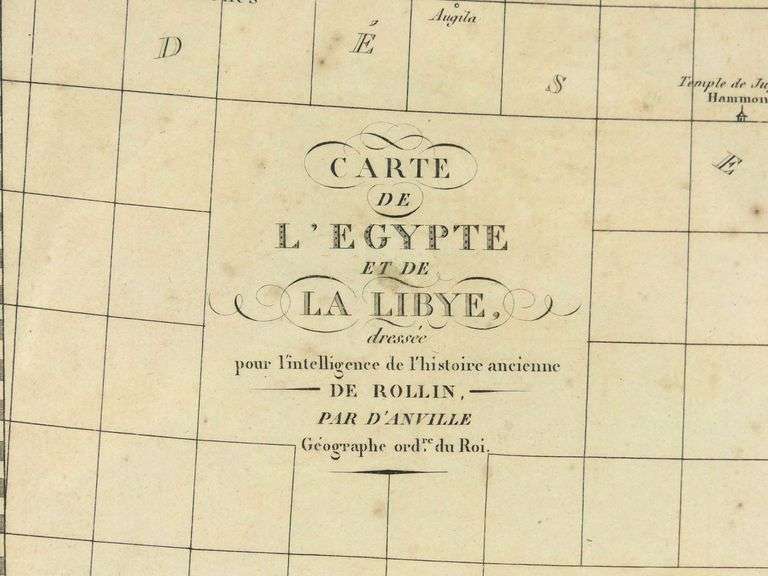 Augila
D É S E
Temple de Ju
Hammon
CARTE
DE
L'EGYPTE
ET DE
LA LIBYE,
dressée
pour l'intelligence de l'histoire ancienne
DE ROLLIN,
PAR D'ANVILLE
Géographe ord.re du Roi.